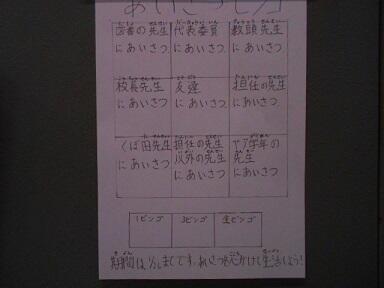 あいさつビンゴ
図書の先生
にあいさつ
代表委員
にあいさつ
教頭先生
にあいさつ
校長先生
にあいさつ
友達
にあいさつ
担任の先生
にあいさつ
くぼ田先生
にあいさつ
担任の先生
以外の先生
にあいさつ
学年の
先生
にあいさつ
1ビンゴ
3ビンゴ
全ビンゴ
期間は までです。あいさつを心がけし生活しよう!